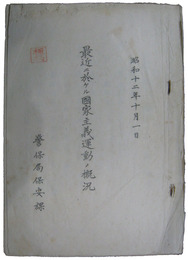 昭和十二年十月一日
最近ニ於ケル國家主義運動ノ概況
警保局保安課